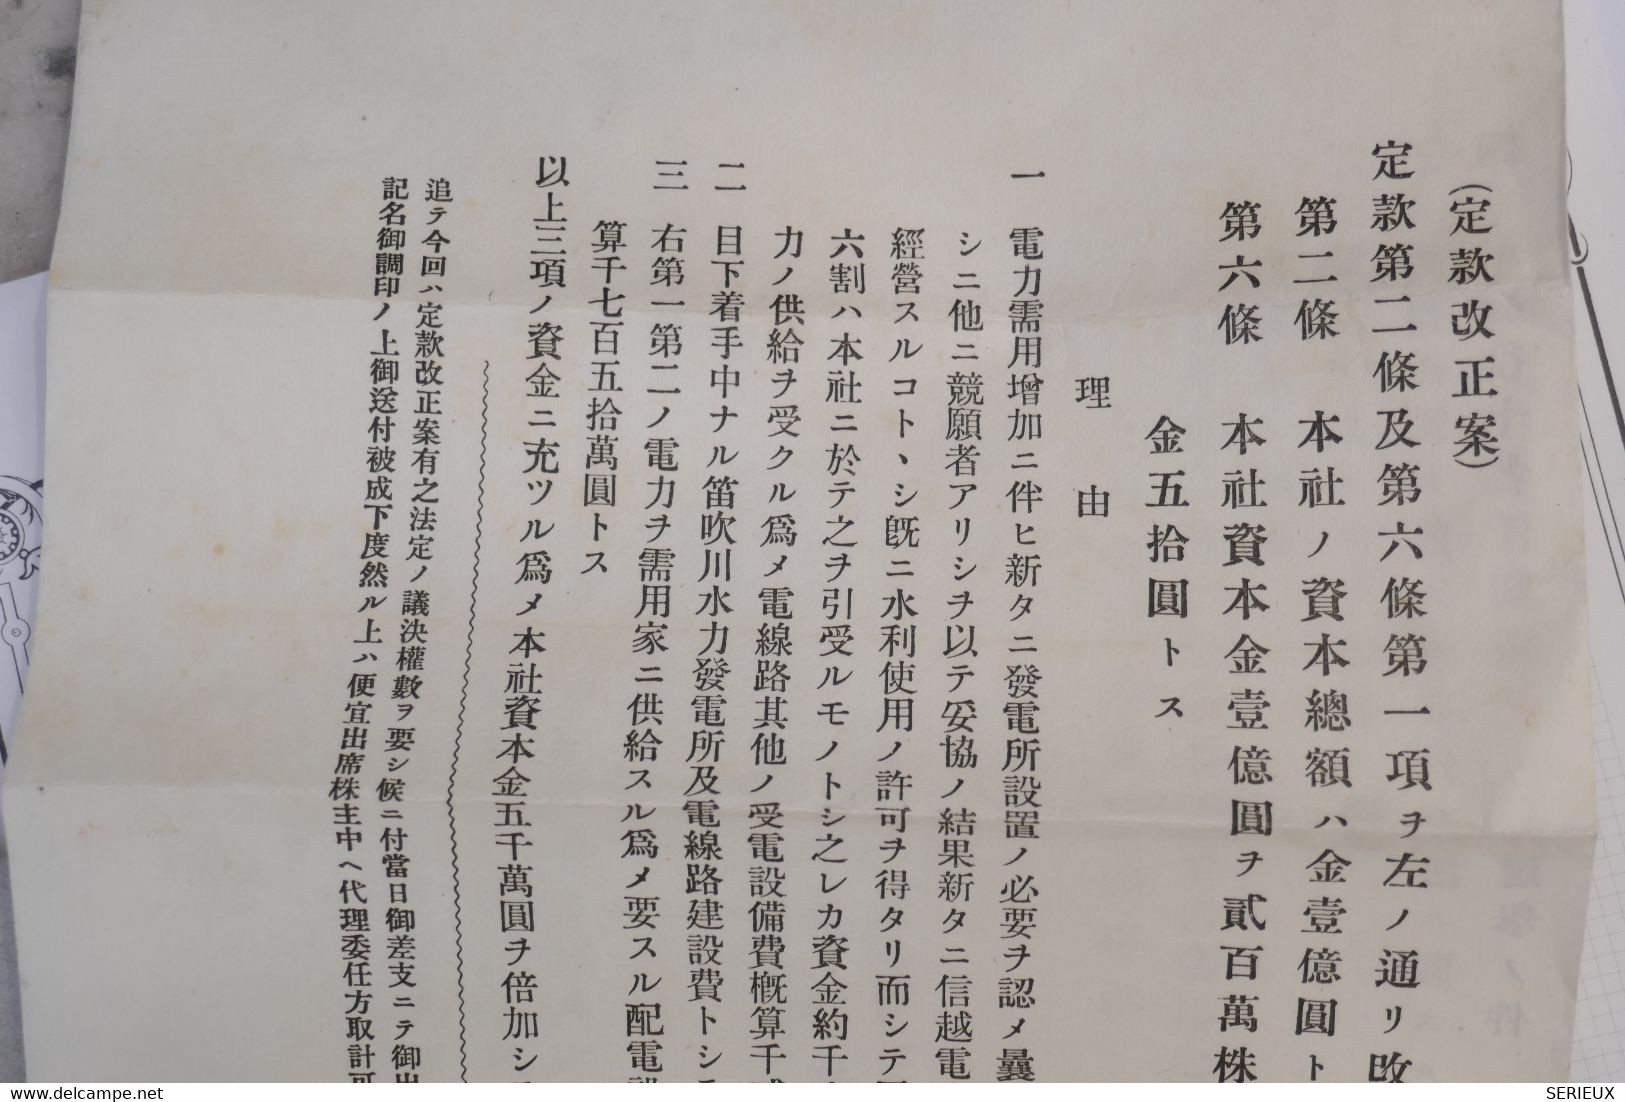 (定款改正案)
定款第二條及第六條第一項ヲ左ノ通リ改
第二條　本社ノ資本總額ハ金壹億圓ト
第六條　本社資本金壹億圓ヲ貳百萬株
金五拾圓トス
理由
一　電力需用增加ニ伴ヒ新タニ發電所設置ノ必要ヲ認メ曩
シニ他ニ競願者アリシヲ以テ妥協ノ結果新タニ信越電
經營スルコトヽシ旣ニ水利使用ノ許可ヲ得タリ而シテ
六割ハ本社ニ於テ之ヲ引受ルモノトシ之レカ資金約千
力ノ供給ヲ受クル爲メ電線路其他ノ受電設備費槪算千
二　目下着手中ナル笛吹川水力發電所及電線路建設費トシ
三　右第一第二ノ電力ヲ需用家ニ供給スル爲メ要スル配電
算千七百五拾萬圓トス
以上三項ノ資金ニ充ツル爲メ本社資本金五千萬圓ヲ倍加シ
追テ今回ハ定款改正案有之法定ノ議決權數ヲ要シ候ニ付當日御差支ニテ御出
記名御調印ノ上御送付被成下度然ル上ハ便宜出席株主中ヘ代理委任方取計可
www.delcampe.net
SERIEUX